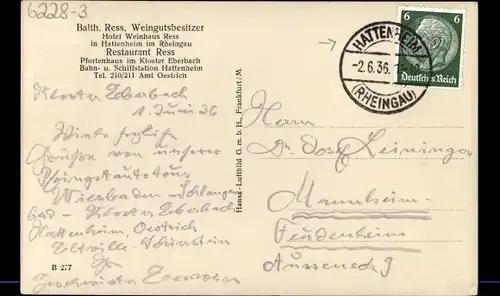 6228-3
Balth. Ress, Weingutsbesitzer
Hotel Weinhaus Ress
in Hattenheim im Rheingau
Restaurant Ress
Pfortenhaus im Kloster Eberbach
Bahn- u. Schiffstation Hattenheim
Tel. 210/211 Amt Oestrich
Kloster Eberbach
1. Juni 36
Viele herzliche
Grüsse von unserer
Pfingstautotour
Wiesbaden - Schlangen
bad - Kloster Eberbach
Hattenheim, Oestrich
Eltville
B 277
Hansa-Luftbild G. m. b. H., Frankfurt/M.
HATTENHEIM
-2.6.36.
(RHEINGAU)
6 6
Deutsches Reich
Herrn
Dr. Josef Leininger
Mannheim-
Feudenheim